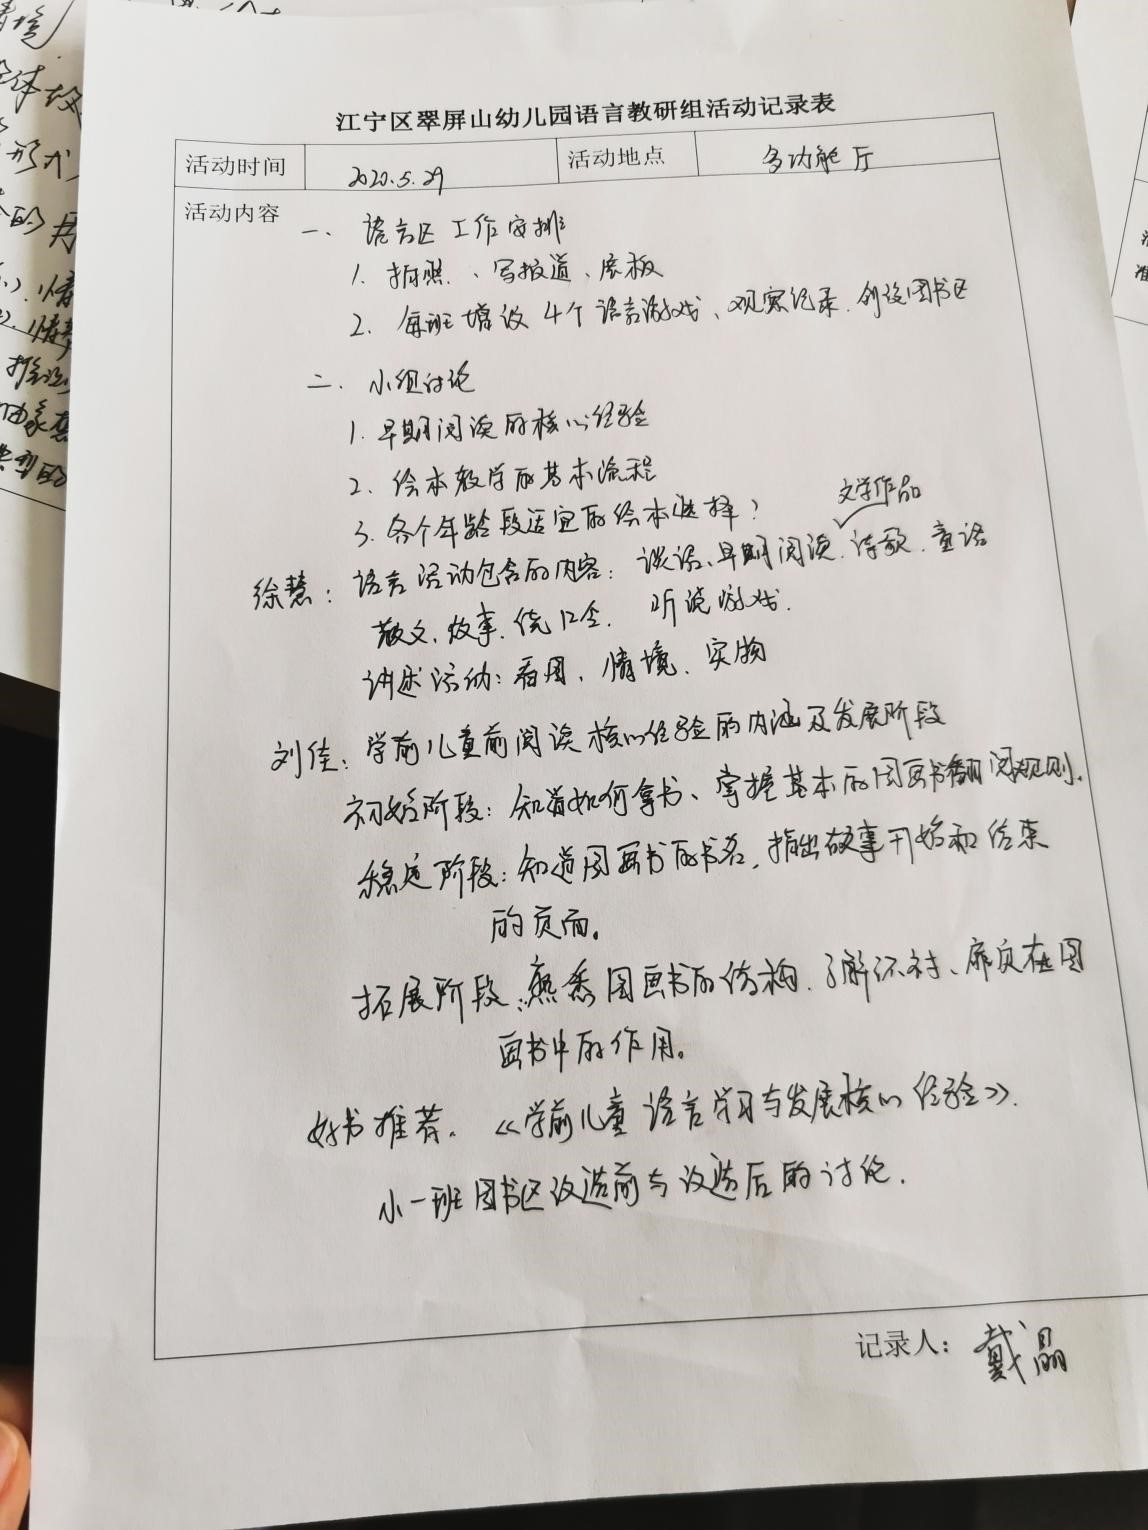 江宁区翠屏山幼儿园语言教研组活动记录表
活动时间 2020.5.29 活动地点 多功能厅
活动内容
一、语言区工作安排
1. 拍照、写报道、展板
2. 每班增设4个语言游戏、观察记录、创设图书区
二、小组讨论
1. 早期阅读的核心经验
2. 绘本教学的基本流程
3. 各个年龄段适宜的绘本选择?
文学作品
徐慧:语言活动包含的内容:谈话、早期阅读、诗歌、童话
散文、故事、绕口令、听说游戏.
讲述活动:看图、情境、实物
刘佳:学前儿童前阅读核心经验的内涵及发展阶段
初始阶段:知道如何拿书、掌握基本的图画书翻阅规则.
稳定阶段:知道图画书的书名,指出故事开始和结束
的页面。
拓展阶段:熟悉图画书的结构,了解环衬、扉页在图
画书中的作用。
好书推荐。《学前儿童语言学习与发展核心经验》.
小一班图书区改造前与改造后的讨论.
记录人:戴晶
情境
形式